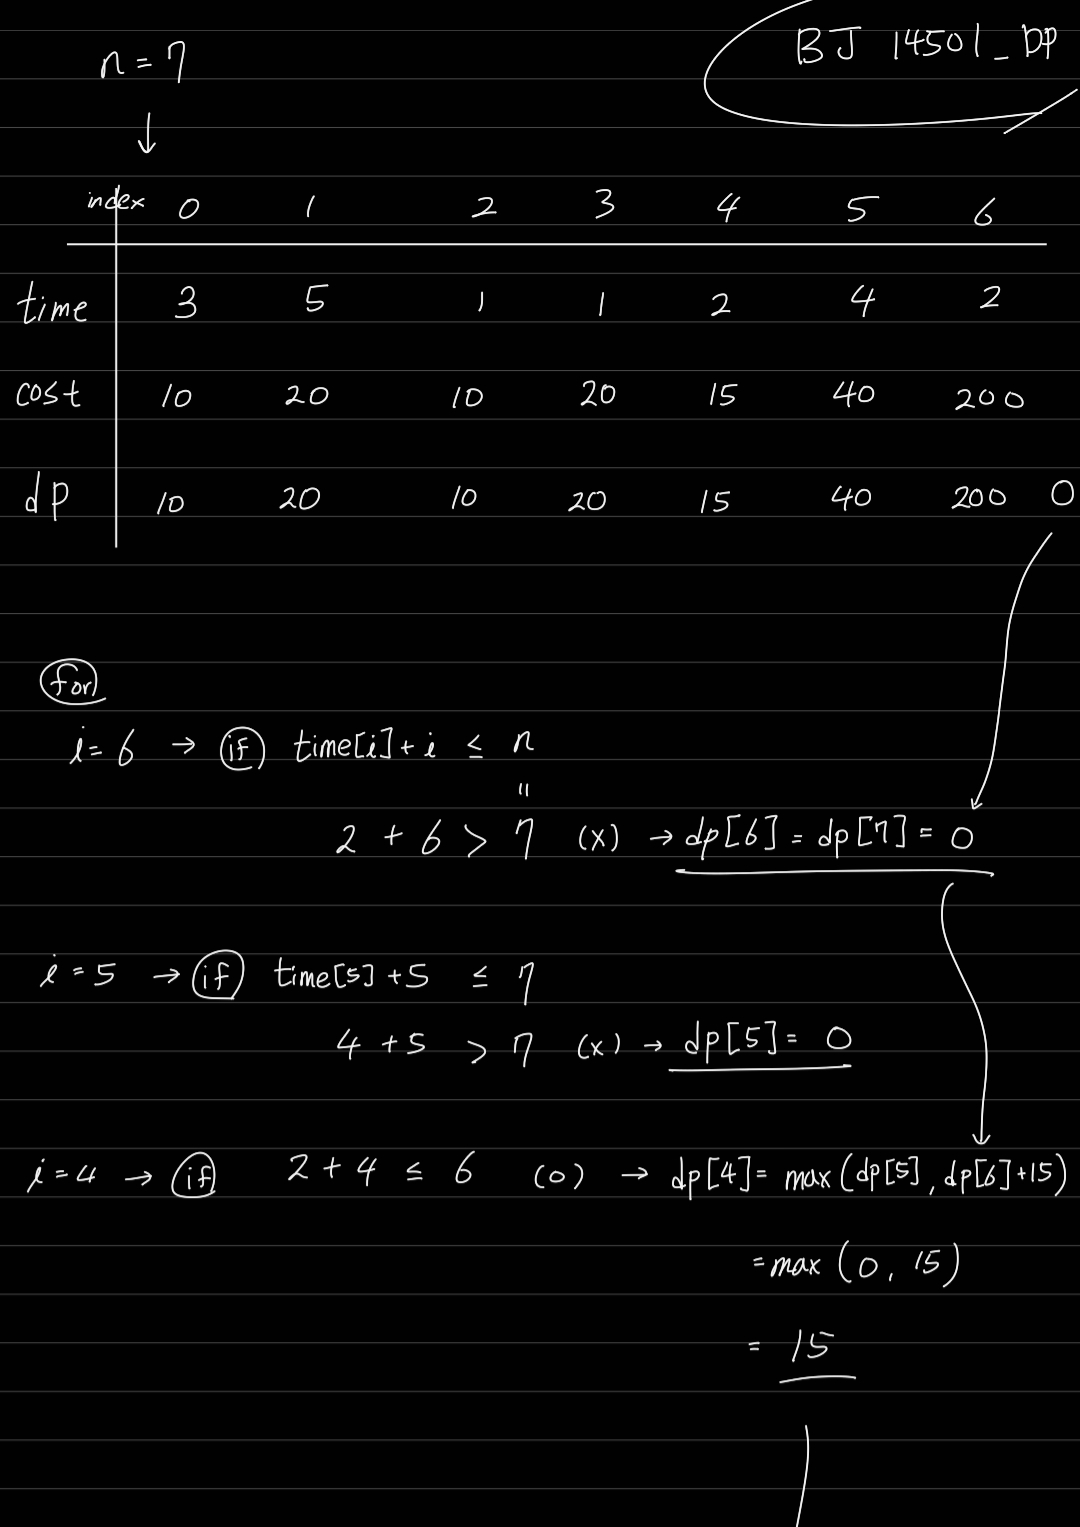 BJ 14501_DP
n = 7
↓
index 0 1 2 3 4 5 6
time 3 5 1 1 2 4 2
cost 10 20 10 20 15 40 200
dp 10 20 10 20 15 40 200 0
for
i = 6 → if time[i] + i ≤ n
"
2 + 6 > 7 (x) → dp[6] = dp[7] = 0
i = 5 → if time[5] + 5 ≤ 7
4 + 5 > 7 (x) → dp[5] = 0
i = 4 → if 2 + 4 ≤ 6 (o) → dp[4] = max(dp[5], dp[6]+15)
= max (0, 15)
= 15